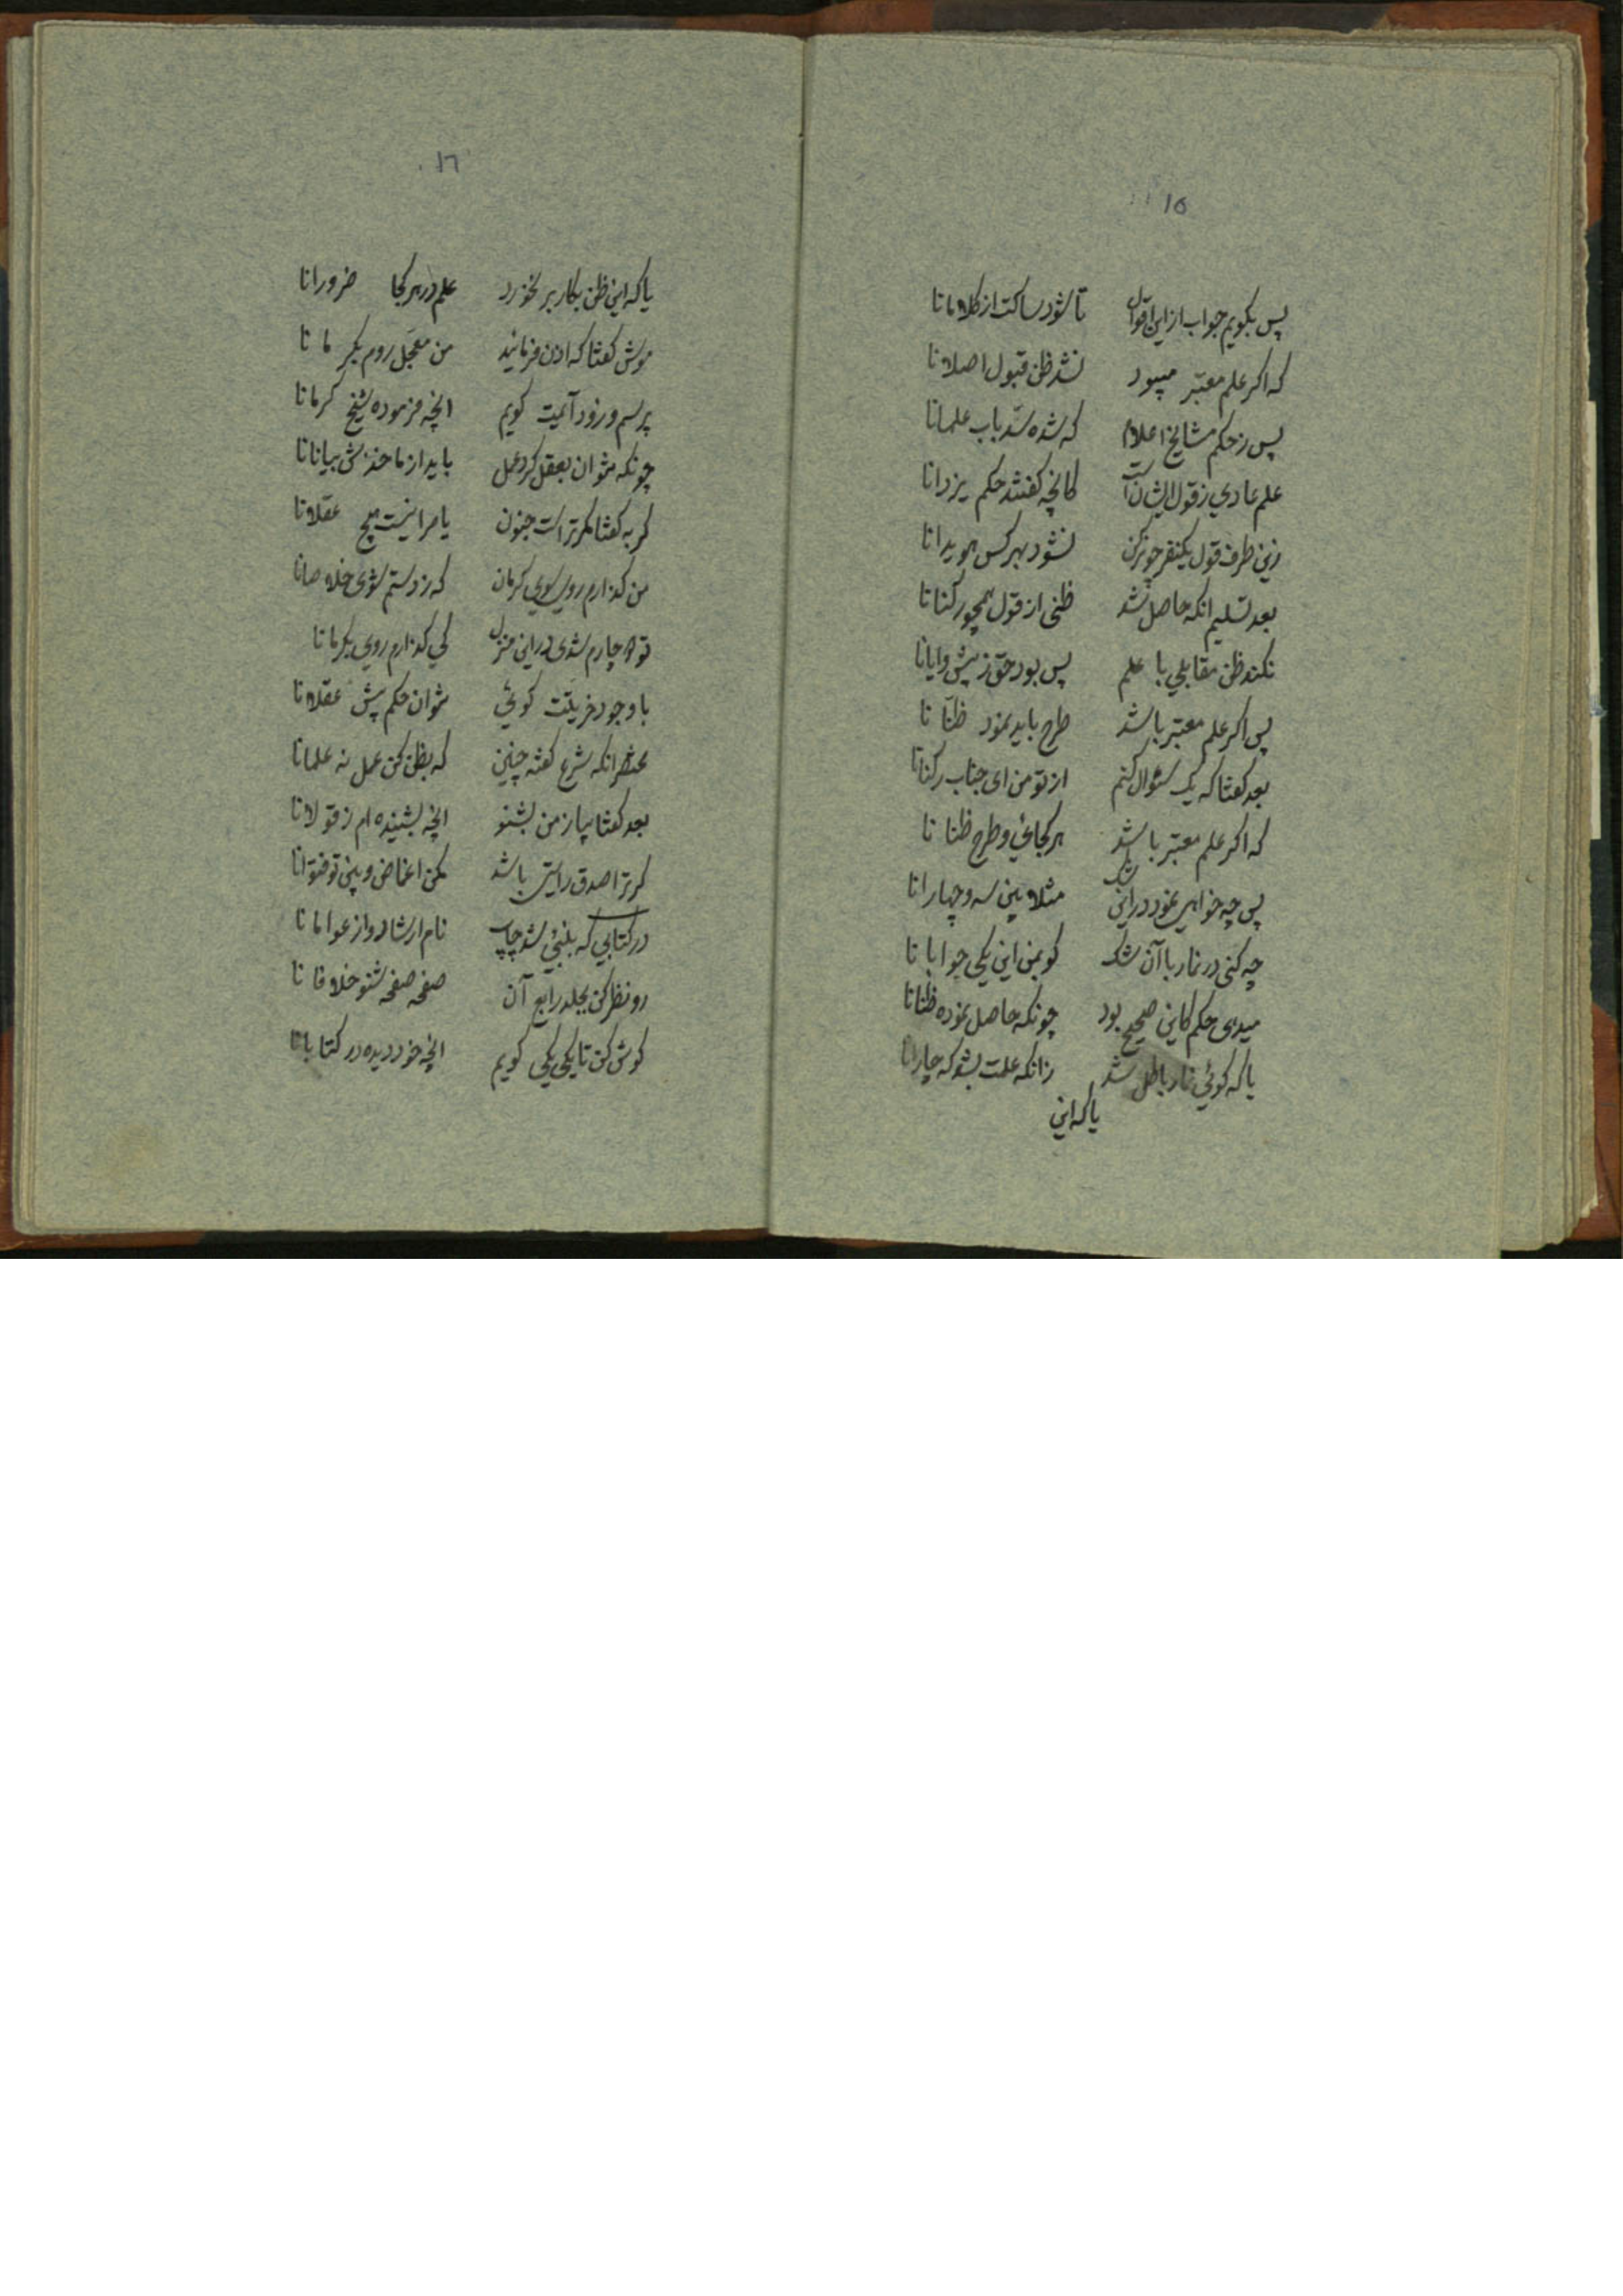 ١٥
پس بگویم جواب از این اقوال تا شود ساکت از کلامانا
که اگر علم معتبر میبود نشد ظن قبول اصلانا
پس ز حکم مشایخ اعلام که شده سد باب علمانا
علم عادی ز قول ایشان است کانچه گفتند حکم یزدانا
زین طرف قول یکنفر چون رکن نشود بهر کس هویدانا
بعد تسلیم انکه حاصل شد ظنی از قول همچو رکنانا
نکند ظن مقابلی با علم پس بود حق ز پیشوایانا
پس اکر علم معتبر باشد طرح باید نمود ظنانا
بعد کفتا که یک سئوال کنم از تو من ای جناب رکنانا
که اکر علم معتبر باشد هر کجائی و طرح ظنانا
پس چه خواهی نمود در این شک مثلا بین سه و چهارانا
چه کنی در نماز با آن شک کو بمن این یکی جوابانا
میدهی حکم کاین صحیح بود چونکه حاصل نموده ظنانا
یا که کوئی نماز باطل شد زانکه علمت نشد که چارانا
یا که این
١٦
یا که این ظن بکار بر نخورد علم در هر کجا ضرورانا
موش کفتا که اذن فرمائید من معجل روم بکرمانا
پرسم و زود آیمت کویم انچه فرموده شیخ کرمانا
چونکه نتوان بعقل کرد عمل باید از ماخذش بیانانا
کربه کفتا مکر تراست جنون یا مرا نیست هیچ عقلانا
من کذارم روی سوی کرمان که ز دستم شوی خلاصانا
تو دچارم شدی در این منزل کی کذارم روی بکرمانا
با وجود خریتت کوئی نتوان حکم پیش عقلانا
عذر انکه شرع کفته چنین که بظن کن عمل نه علمانا
بعد کفتا بیا ز من بشنو انچه بشنیده ام ز قولانا
کر ترا صدق راستی باشد مکن اغماض و بین تو فتوانا
در کتابی که بمبئی شد چاپ نام ارشاد و از عوامانا
رو نظر کن بجلد رابع آن صفحه صفحه شنو خلافانا
کوش کن تا یکی یکی کویم انچه خود دیده در کتابانا